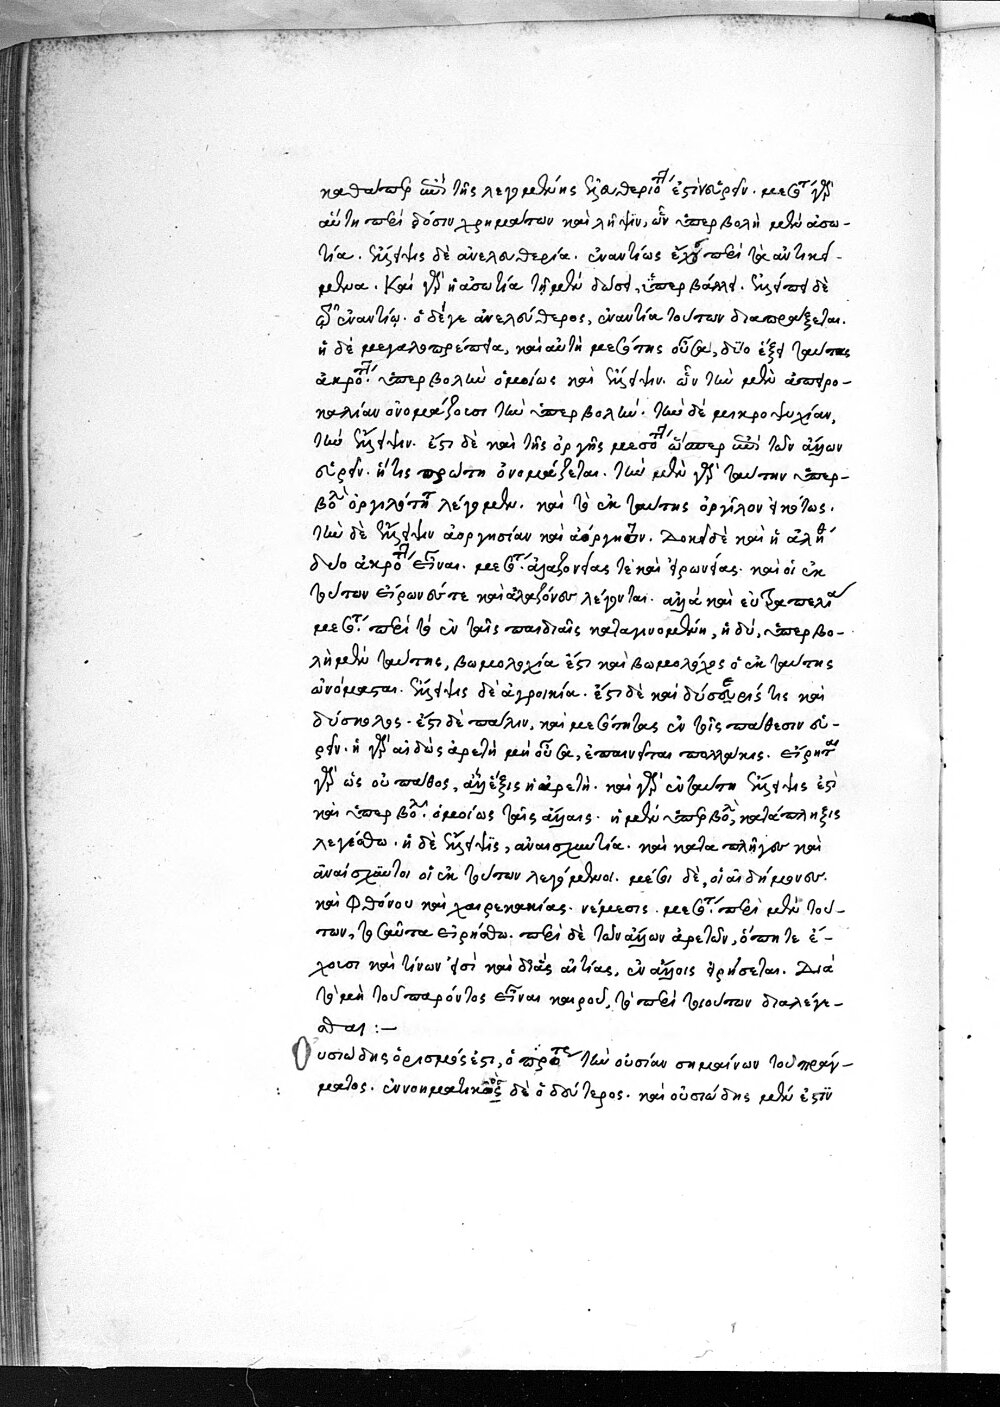 καθάπερ ἐπὶ τῆς λεγομένης ἐλευθεριότητος ἔστιν εὑρεῖν. μεσότης γὰρ
αὕτη περὶ δόσιν χρημάτων καὶ λῆψιν, ὧν ὑπερβολὴ μὲν ἀσω-
τία. ἔλλειψις δὲ ἀνελευθερία. ἐναντίως ἔχουσι περὶ τὰ ἀντικεί-
μενα. Καὶ γὰρ ἡ ἀσωτία τῇ μὲν δόσει, ὑπερβάλλει. ἐλλείπει δὲ
τῷ ἐναντίῳ. ὁ δέ γε ἀνελεύθερος, ἐναντία τούτων διαπράξεται.
ἡ δὲ μεγαλοπρέπεια, καὶ αὐτὴ μεσότης οὖσα, δύο ἕξει ταύτας
ἀκρότητας. ὑπερβολὴν ὁμοίως καὶ ἔλλειψιν. ὧν τὴν μὲν ἀπειρο-
καλίαν ὀνομάζουσι τὴν ὑπερβολήν. τὴν δὲ μικροψυχίαν,
τὴν ἔλλειψιν. ἔστι δὲ καὶ τῆς ὀργῆς μεσότητα ὥσπερ ἐπὶ τῶν ἄλλων
εὑρεῖν. ἥτις πρώτη ὀνομάζεται. τὴν μὲν γὰρ ταύτην ὑπερ-
βολὴν ὀργιλότητα λέγομεν. καὶ τὸ ἐκ ταύτης ὀργίλον εἰκότως.
τὴν δὲ ἔλλειψιν ἀοργησίαν καὶ ἀόργητον. Δοκεῖ δὲ καὶ ἡ ἀλήθεια
δύο ἀκρότητας εἶναι. μεσότης. ἀλαζονείας τὲ καὶ εἰρωνείας. καὶ οἱ ἐκ
τούτων εἴρωνές τε καὶ ἀλαζόνες λέγονται. ἀλλὰ καὶ εὐτραπελία
μεσότης. περὶ τὸ ἐν ταῖς παιδιαῖς καταγινομένη, ἡδύ, ὑπερβο-
λὴ μὲν ταύτης, βωμολοχία ἐστὶ καὶ βωμολόχος ὁ ἐκ ταύτης
ὠνόμασται. ἔλλειψις δὲ ἀγροικία. ἔστι δὲ καὶ δύσερίς τις καὶ
δύσκολος. ἔστι δὲ πάλιν, καὶ μεσότητας ἐν τοῖς πάθεσιν εὑ-
ρεῖν. ἡ γὰρ αἰδὼς ἀρετὴ μὴ οὖσα, ἐπαινεῖται πολλάκις. εἴρηται
γὰρ ὡς οὐ πάθος, ἀλλ' ἕξις ἡ ἀρετή. καὶ γὰρ ἐν ταύτῃ ἔλλειψις ἐστὶ
καὶ ὑπερβολὴ. ὁμοίως ταῖς ἄλλαις. ἡ μὲν ὑπερβολὴ, κατάπληξις
λεγέσθω. ἡ δὲ ἔλλειψις, ἀναισχυντία. καὶ καταπλῆγες καὶ
ἀναίσχυντοι οἱ ἐκ τούτων λεγόμενοι. μέσοι δὲ, οἱ αἰδήμονες.
καὶ φθόνου καὶ χαιρεκακίας. νέμεσις. μεσότης. περὶ μὲν τού-
των, τοσαῦτα εἰρήσθω. περὶ δὲ τῶν ἄλλων ἀρετῶν, ὅπη τε ἔ-
χουσι καὶ τίνων εἰσὶ καὶ διὰ τὰς αἰτίας, ἐν ἄλλοις εἰρήσεται. Διὰ
τὸ μὴ τοῦ παρόντος εἶναι καιροῦ, τὸ περὶ τοιούτων διαλέγε-
σθαι :—
Οὐσιώδης ὁρισμός ἐστι, ὁ πρῶτος τὴν οὐσίαν σημαίνων τοῦ πράγ-
ματος. ἐννοηματικὸς δὲ ὁ δεύτερος. καὶ οὐσιώδης μὲν ἐστὶν